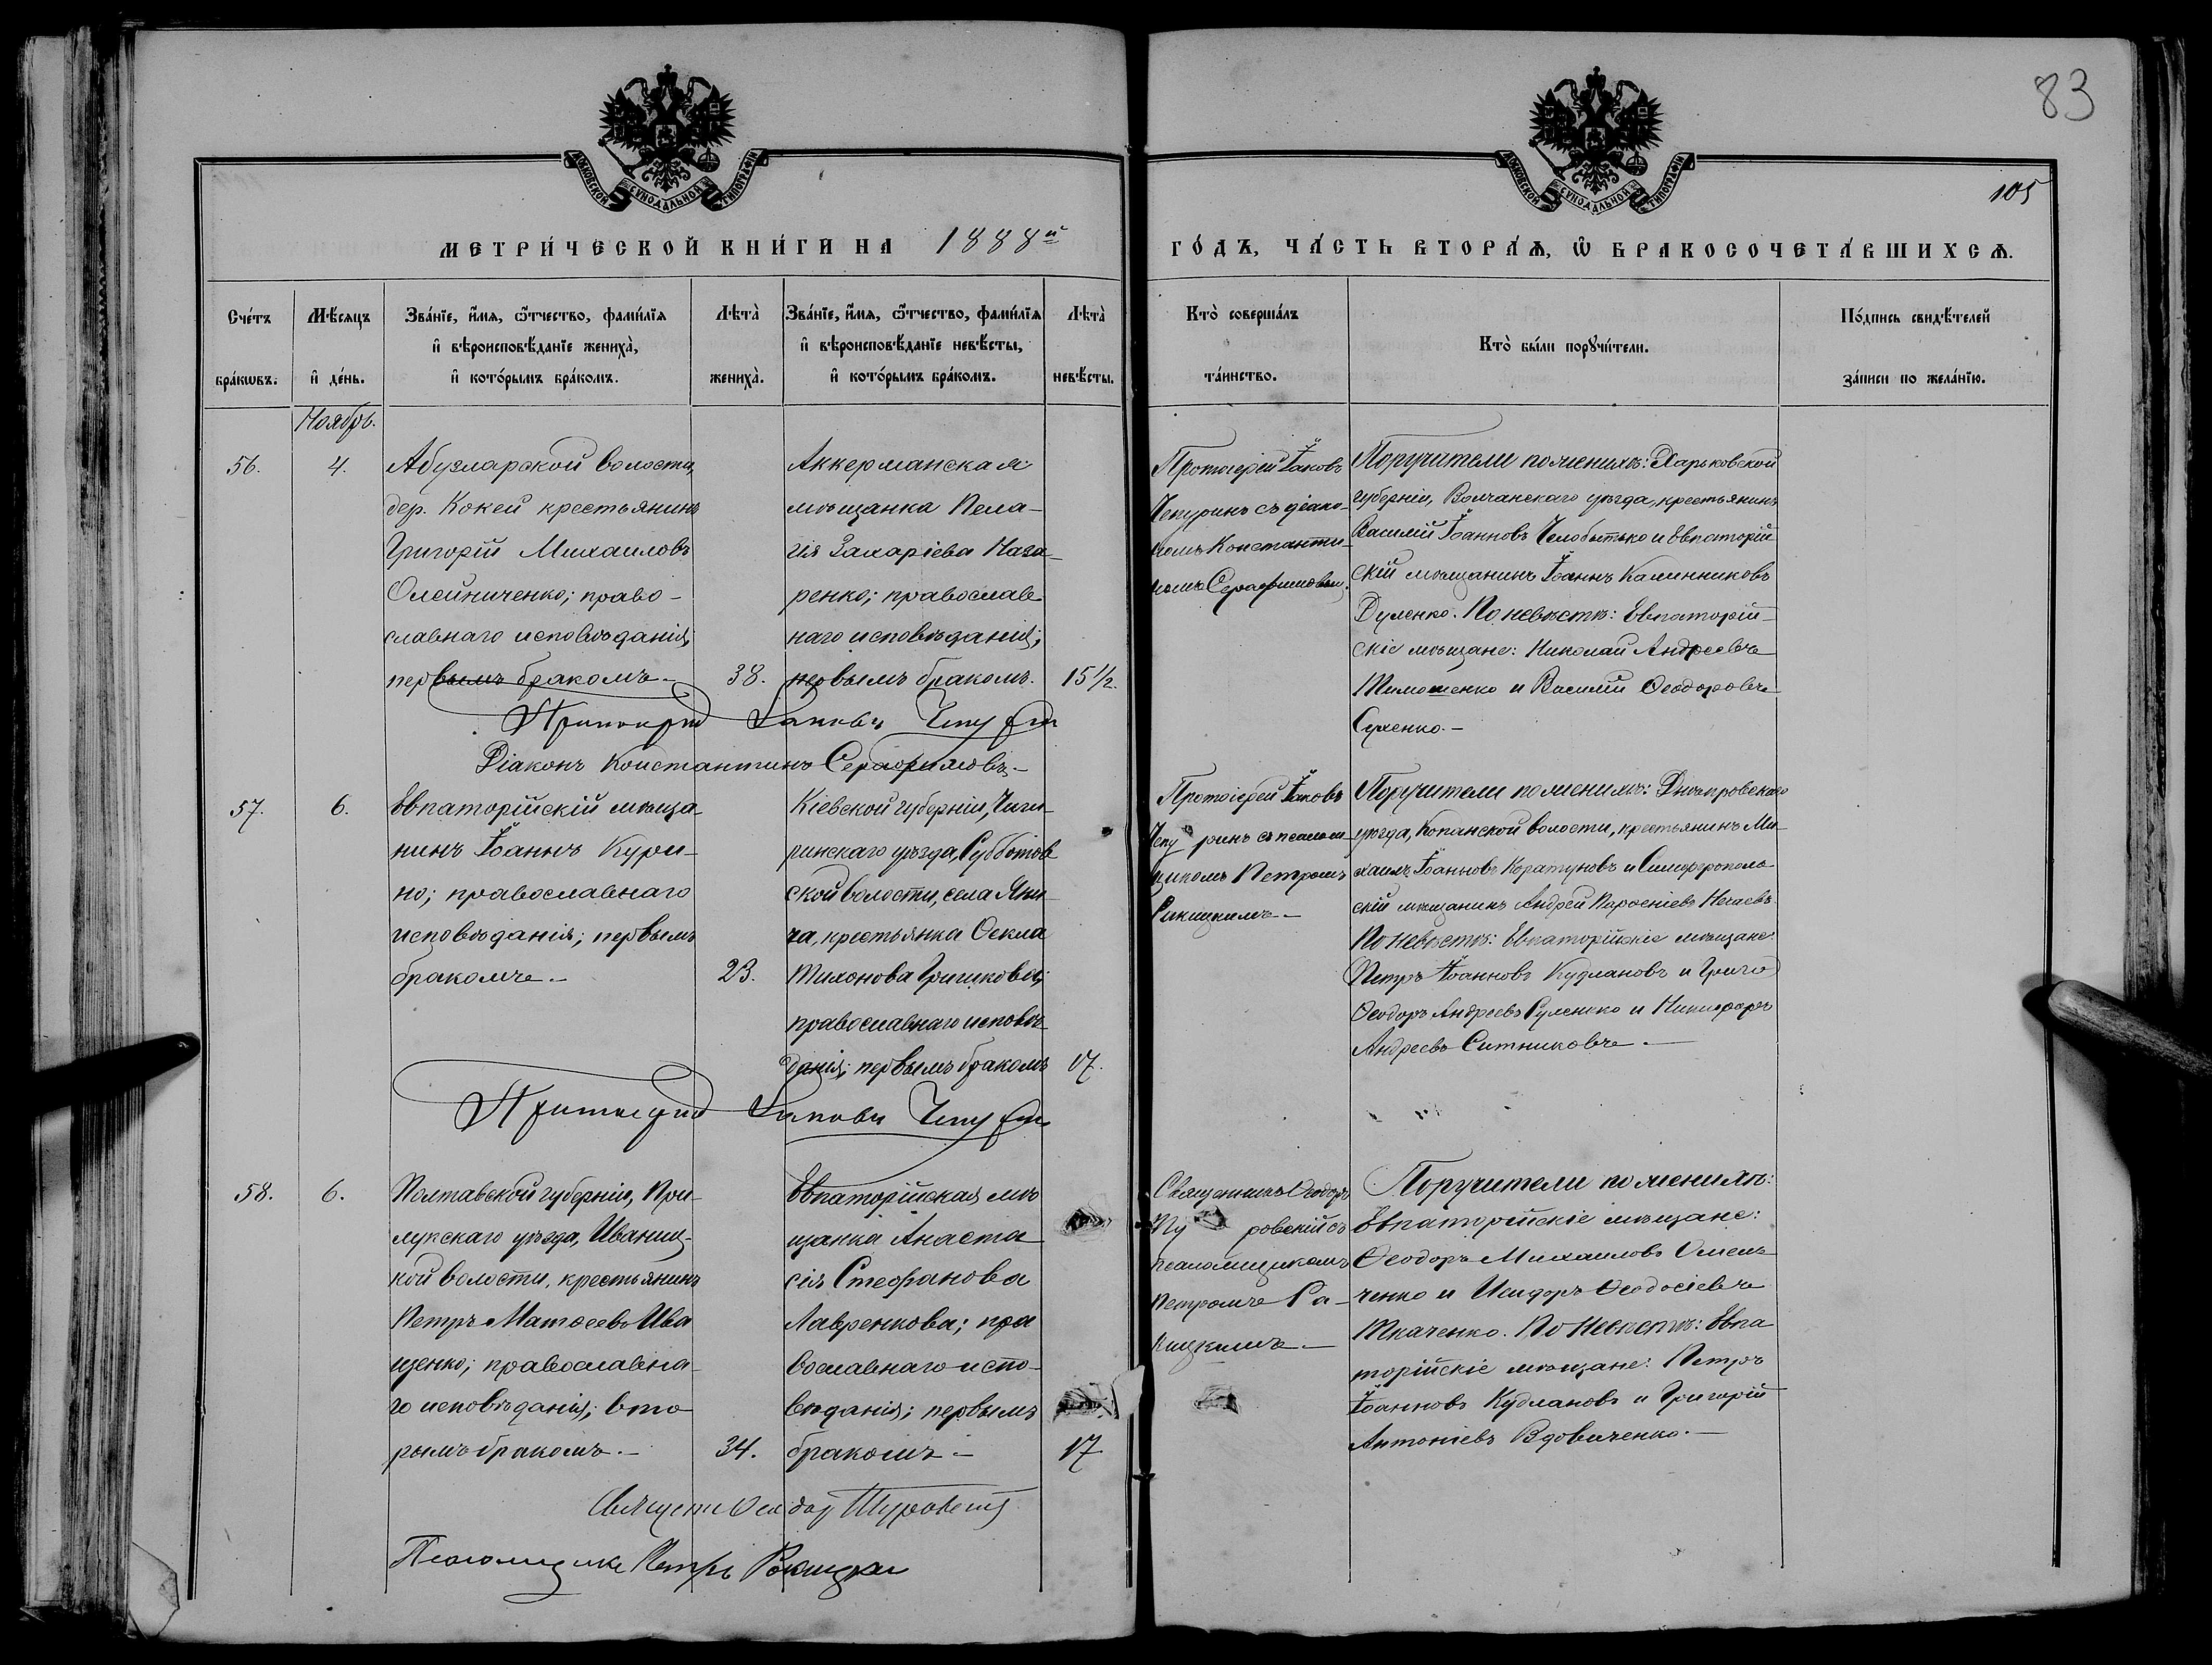 83
105
МОСКОВСКОЙ СѴНОДАЛЬНОЙ ТИПОГРАФІИ
МОСКОВСКОЙ СѴНОДАЛЬНОЙ ТИПОГРАФІИ
МЕТРИ́ЧЕСКОЙ КНИ́ГИ НА 1888й
ГО́ДЪ, ЧА́СТЬ ВТОРА́Ѧ, Ѡ҆ БРАКОСОЧЕТА́ВШИХСѦ.
Сче́тъ
бра́кѡвъ.
Мѣ́сѧцъ
и҆ де́нь.
Зва́нїе, и҆́мѧ, ѻ҆́тчество, фами́лїѧ
и҆ вѣроисповѣ́данїе жениха̀,
и҆ кото́рымъ бра́комъ.
Лѣта̀
жениха̀.
Зва́нїе, и҆́мѧ, ѻ҆́тчество, фами́лїѧ
и҆ вѣроисповѣ́данїе невѣ́сты,
и҆ кото́рымъ бра́комъ.
Лѣта̀
невѣ́сты.
Кто̀ соверша́лъ
та́инство.
Кто̀ бы́ли порꙋчи́тели.
По́дпись свидѣ́телей
за́писи по жела́нїю.
Ноябрь.
56.
4.
Абузларской волости,
дер. Кокей крестьянинъ
Григорій Михаиловъ
Олейниченко; право-
славнаго исповѣданія;
первымъ бракомъ.
38.
Аккерманская
мѣщанка Пела-
гія Захаріева Наза-
ренко; православ
наго исповѣданія;
первымъ бракомъ.
15 1/2.
Протоіерей Іаковъ
Чепуринъ съ діако-
номъ Константи-
номъ Серафимовымъ.
Поручители по женихѣ: Харьковской
губерніи, Волчанскаго уѣзда, крестьянинъ
Василій Іоанновъ Челобытько и Евпаторій
скій мѣщанинъ Іоаннъ Калинниковъ
Дуленко. По невѣстѣ: Евпаторій-
скіе мѣщане: Николай Андреевъ
Тимошенко и Василій Ѳеодоровъ
Сухенко.-
Протоіерей Іаковъ Чепурин
Діаконъ Константинъ Серафимовъ.-
57.
6.
Евпаторійскій мѣща-
нинъ Іоаннъ Кури-
но; православнаго
исповѣданія; первымъ
бракомъ.-
23.
Кіевской губерніи, Чиги-
ринскаго уѣзда, Субботов
ской волости, села Яни-
ча, крестьянка Ѳекла
Тихонова Григцкова;
православнаго исповѣ-
данія; первымъ бракомъ
17.
Протоіерей Іаковъ
Чепуринъ съ псалом-
щикомъ Петромъ
Ракицкимъ.-
Поручители по женихѣ: Днѣпровскаго
уѣзда, Копанской волости, крестьянинъ Ми-
хаилъ Іоанновъ Коратуновъ и Симферополь-
скій мѣщанинъ Андрей Парѳеніевъ Нечаевъ.
По невѣстѣ: Евпаторійскіе мѣщане:
Петръ Іоанновъ Кудлановъ и
Ѳеодоръ Андреевъ Руленко и Никифоръ
Андреевъ Ситниковъ.-
Протоіерей Іаковъ Чепурин
58.
6.
Полтавской губерніи, При-
лукскаго уѣзда, Иваниц-
кой волости, крестьянинъ
Петръ Матѳеевъ Ива
щенко; православна-
го исповѣданія; вто
рымъ бракомъ.-
34.
Евпаторійская мѣ
щанка Анаста
сія Стефанова
Лавренкова; пра
вославнаго испо-
вѣданія; первымъ
бракомъ-
17
Священникъ Ѳеодоръ
Туровскій съ
псаломщикомъ
Петромъ Ра-
кицкимъ.-
Поручители по женихѣ:
Евпаторійскіе мѣщане:
Ѳеодоръ Михаиловъ Омель-
ченко и Исидоръ Ѳеодосіевъ
Ткаченко. По невѣстѣ: Евпа
торійскіе мѣщане: Петръ
Іоанновъ Кудлановъ и Григорій
Антоніевъ Вдовиченко.-
Священн Ѳеодор Туровскій
Псаломщикъ Петръ Ракицкій